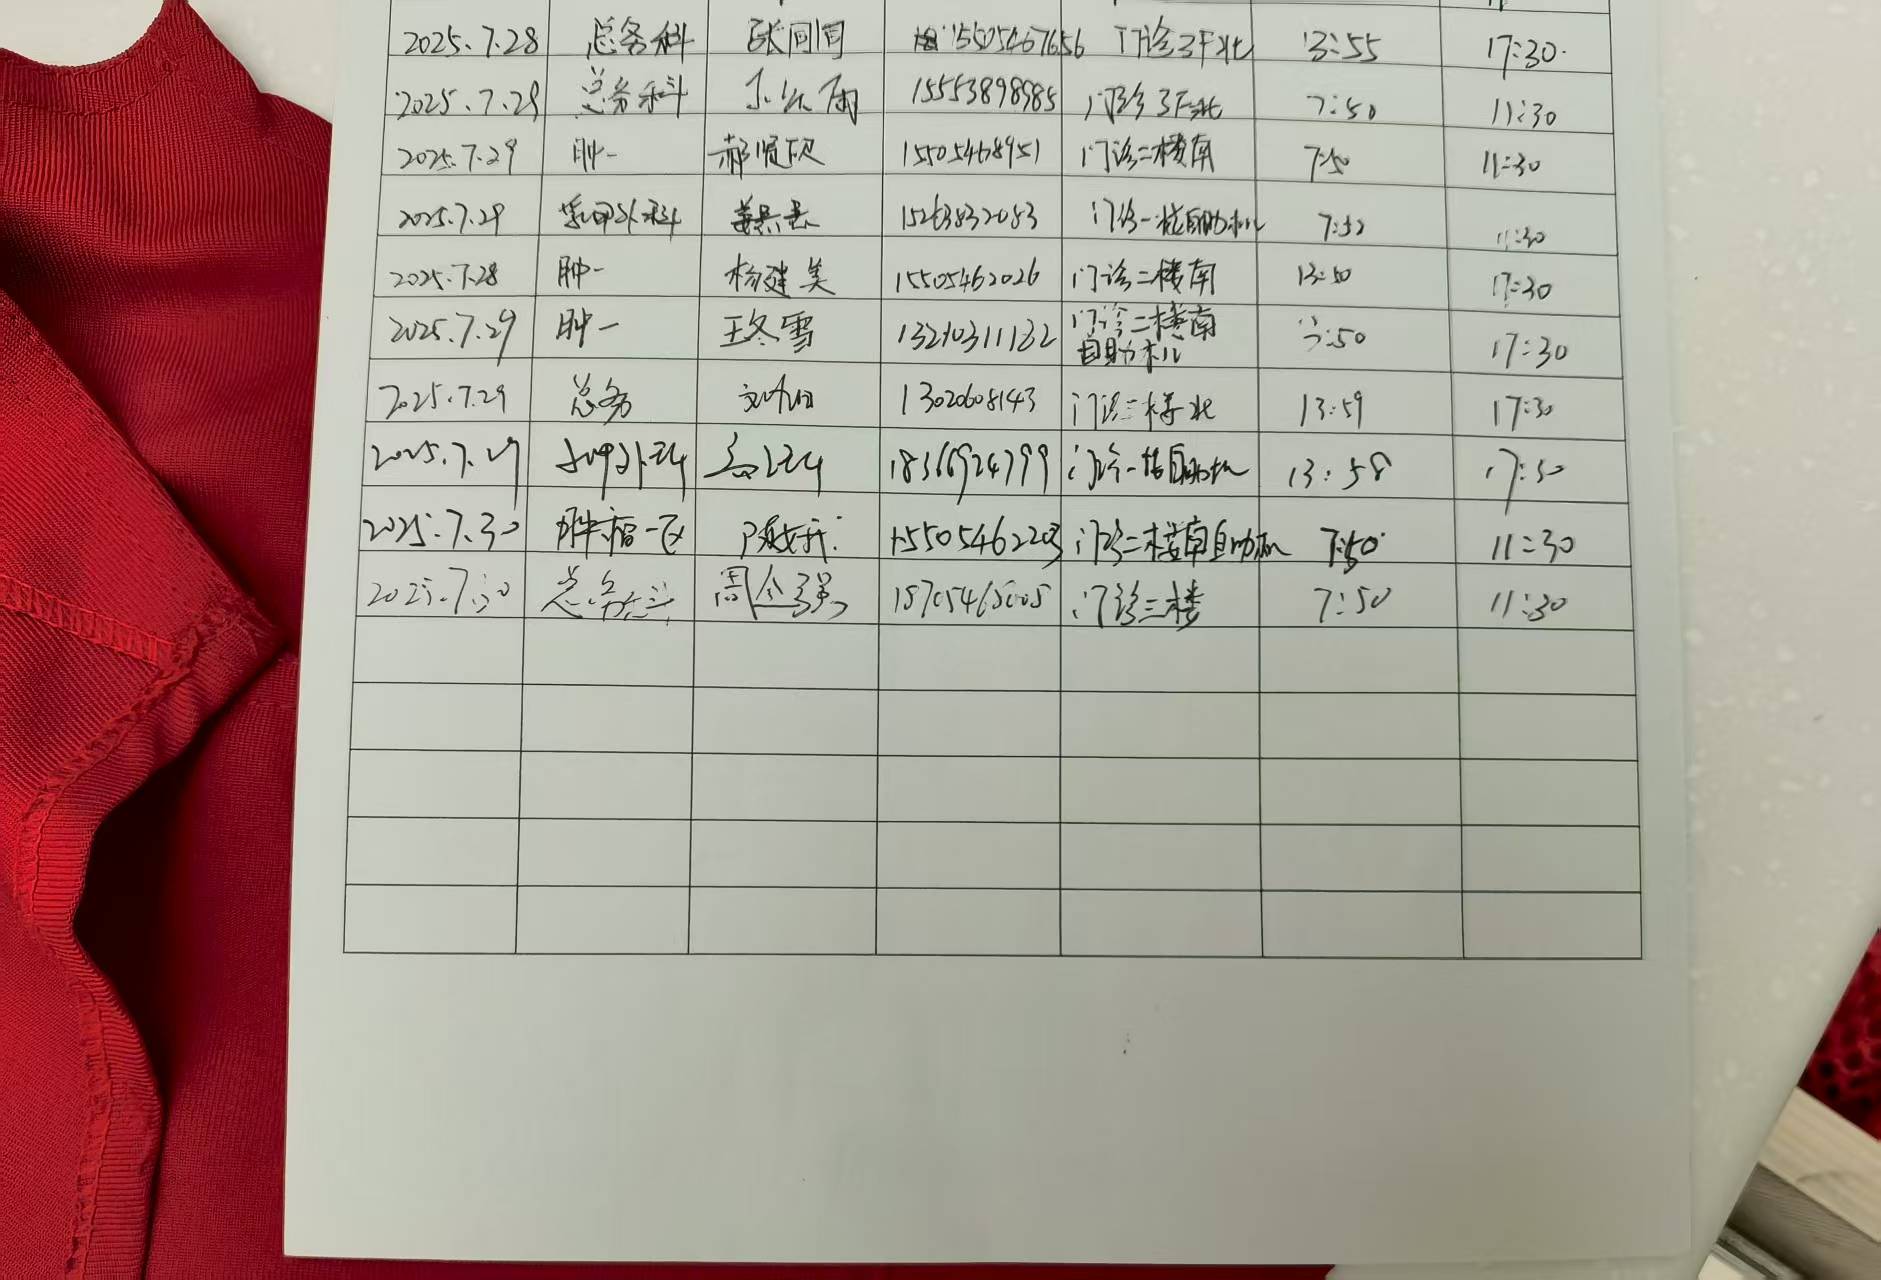 2025.7.28 总务科 张同同 15505467656 门诊3F北 13:55 17:30
2025.7.29 总务科 15553898985 门诊3F北 7:50 11:30
2025.7.29 肿一 郝 15505468951 门诊二楼南 7:50 11:30
2025.7.29 乳甲外科 15263832083 门诊一楼自助机 7:50 11:30
2025.7.28 肿一 杨建美 15505462026 门诊二楼南 13:50 17:30
2025.7.29 肿一 王冬雪 门诊二楼南 :50 17:30
自助机
2025.7.29 总务 1302608143 门诊三楼北 13:59 17:30
2025.7.29 乳甲外科 18366924799 门诊一楼自助机 13:58 17:30
2025.7.30 肿瘤一区 15505462203 门诊二楼南自助机 7:50 11:30
2025.7.30 总务科 周金强 门诊三楼 7:50 11:30